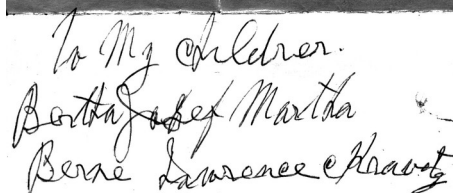 To My children.
Bertha Josef Martha
Berne Lawrence Kravetz